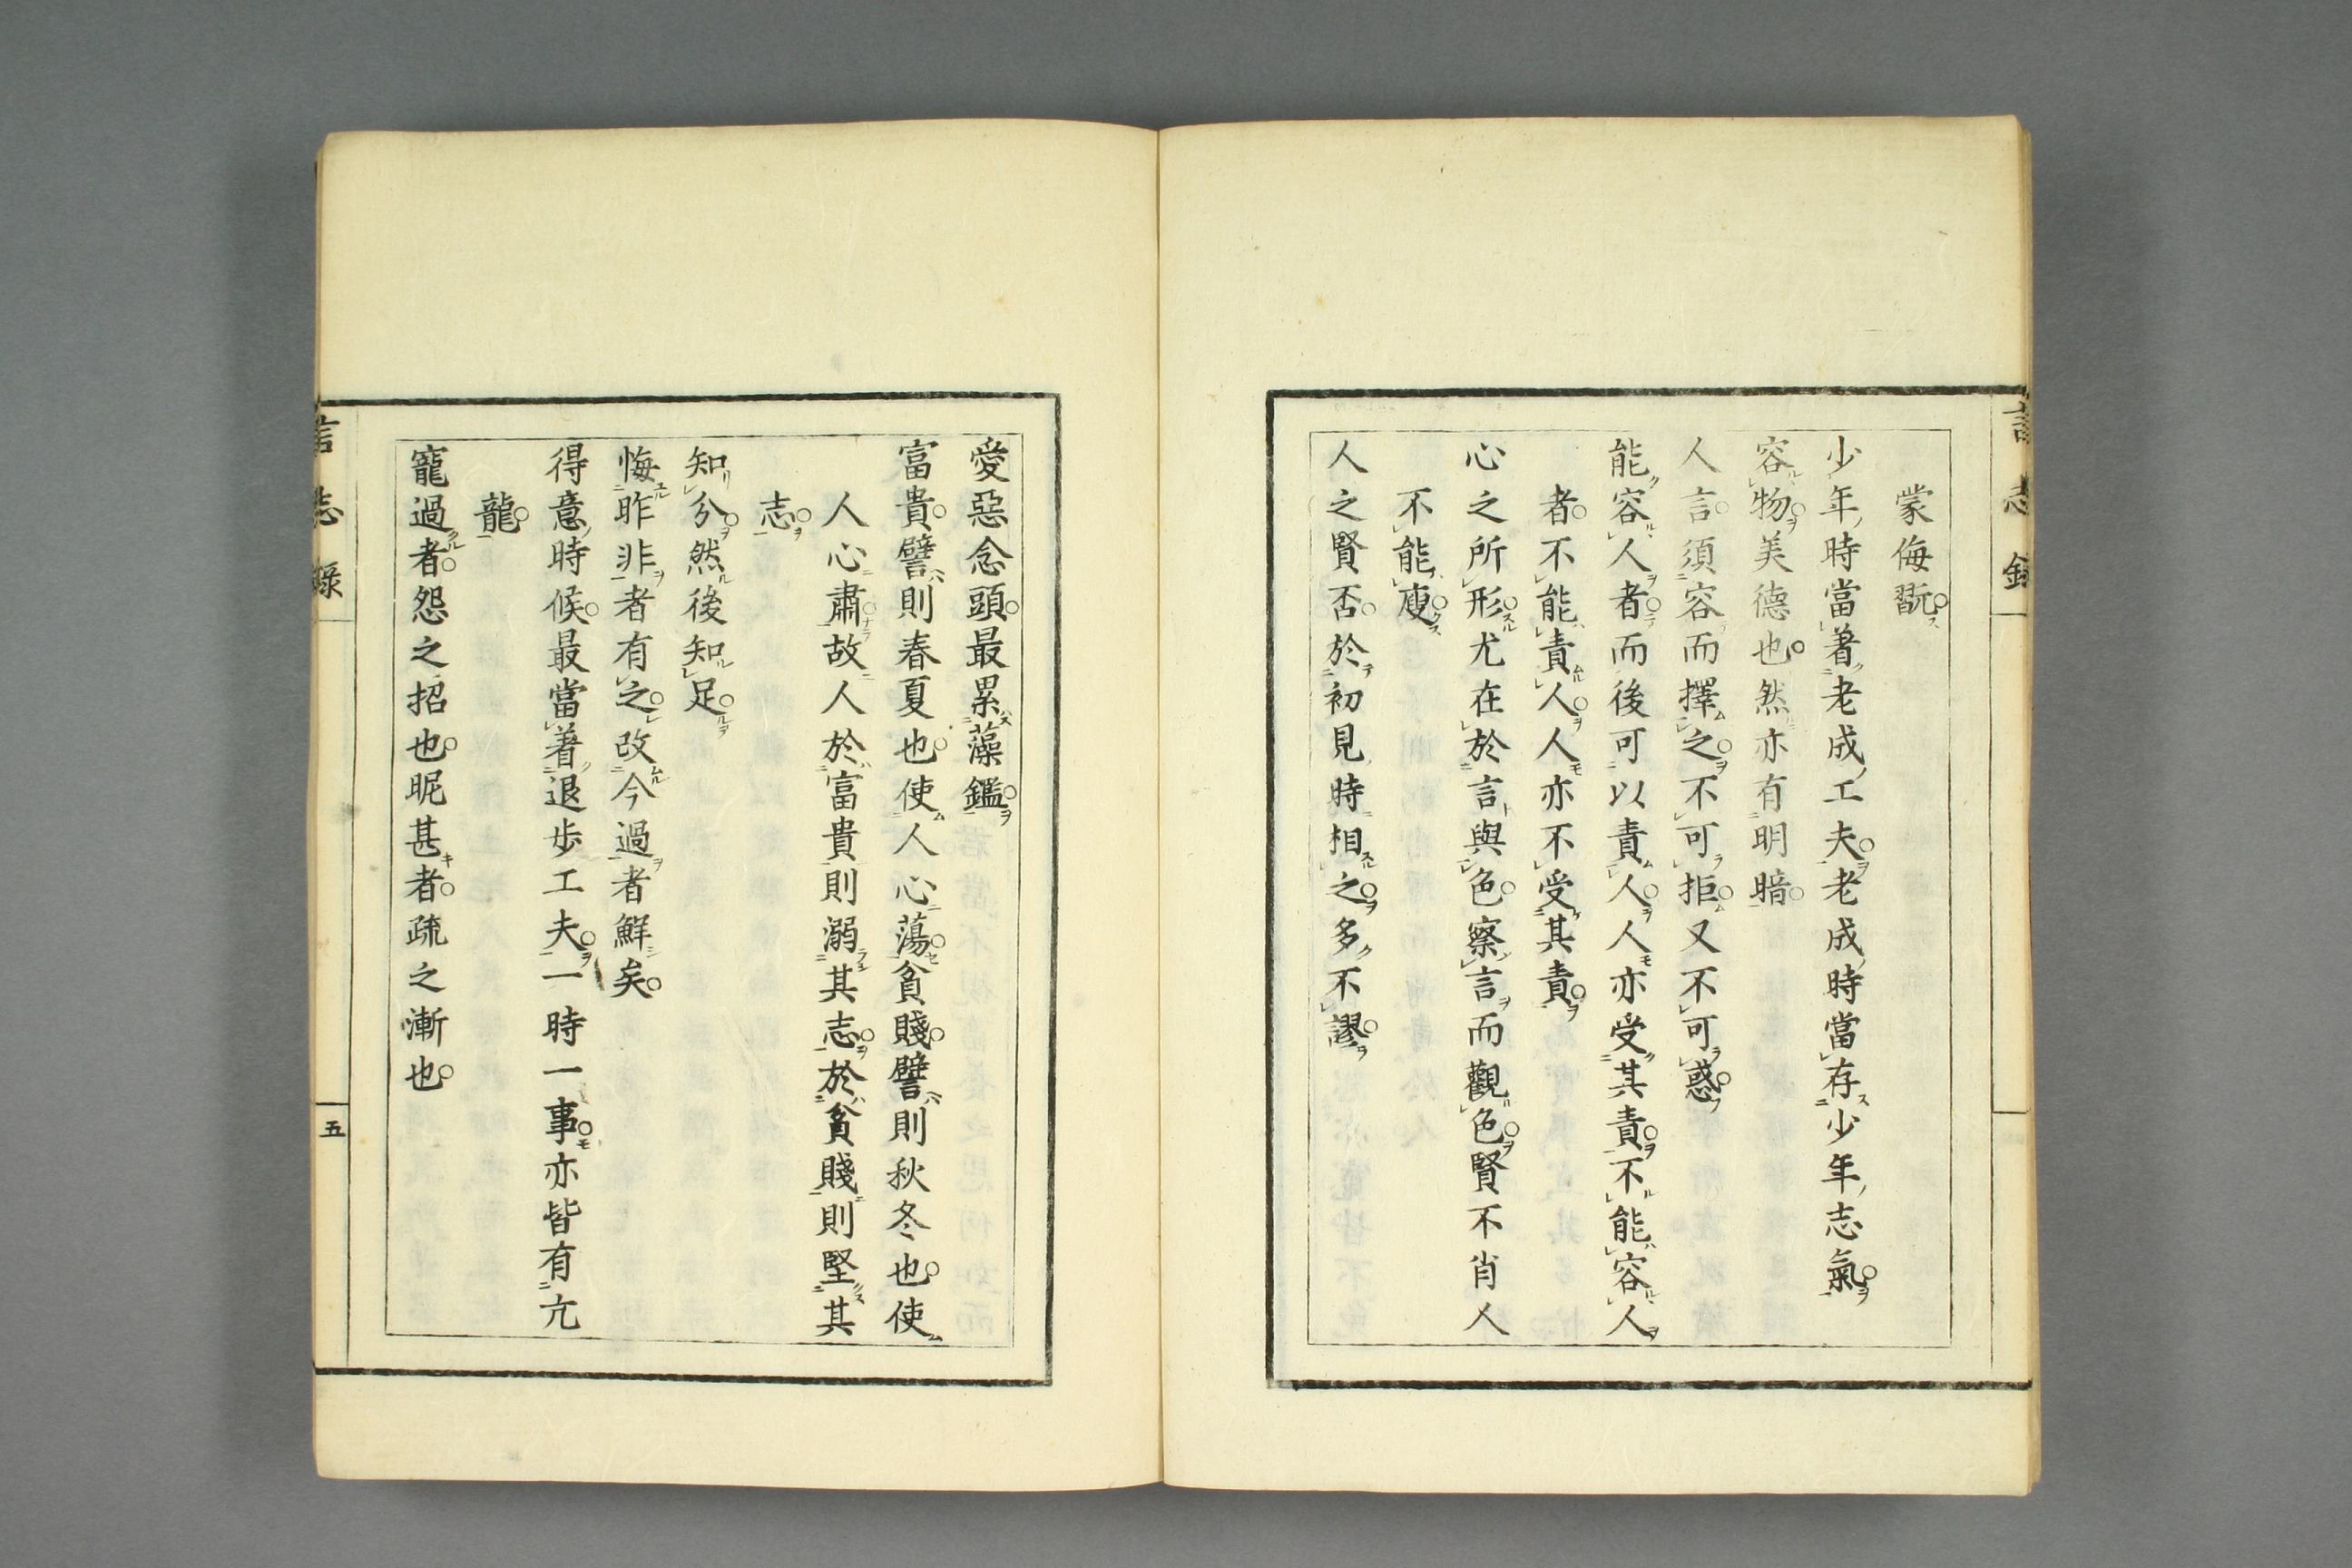 蒙侮翫
少年時當著老成工夫老成時當存少年志氣
容物美德也然亦有明暗
人言須容而擇之不可拒又不可惑
能容人者而後可以責人人亦受其責不能容人
者不能責人人亦不受其責
心之所形尤在於言與色察言而觀色賢不肖人
不能廋
人之賢否於初見時相之多不謬
愛惡念頭最累藻鑑
富貴譬則春夏也使人心蕩貧賤譬則秋冬也使
人心肅故人於富貴則溺其志於貧賤則堅其
志
知分然後知足
悔昨非者有之改今過者鮮矣
得意時候最當著退歩工夫一時一事亦皆有亢
龍
寵過者怨之招也昵甚者疏之漸也
言志錄
五